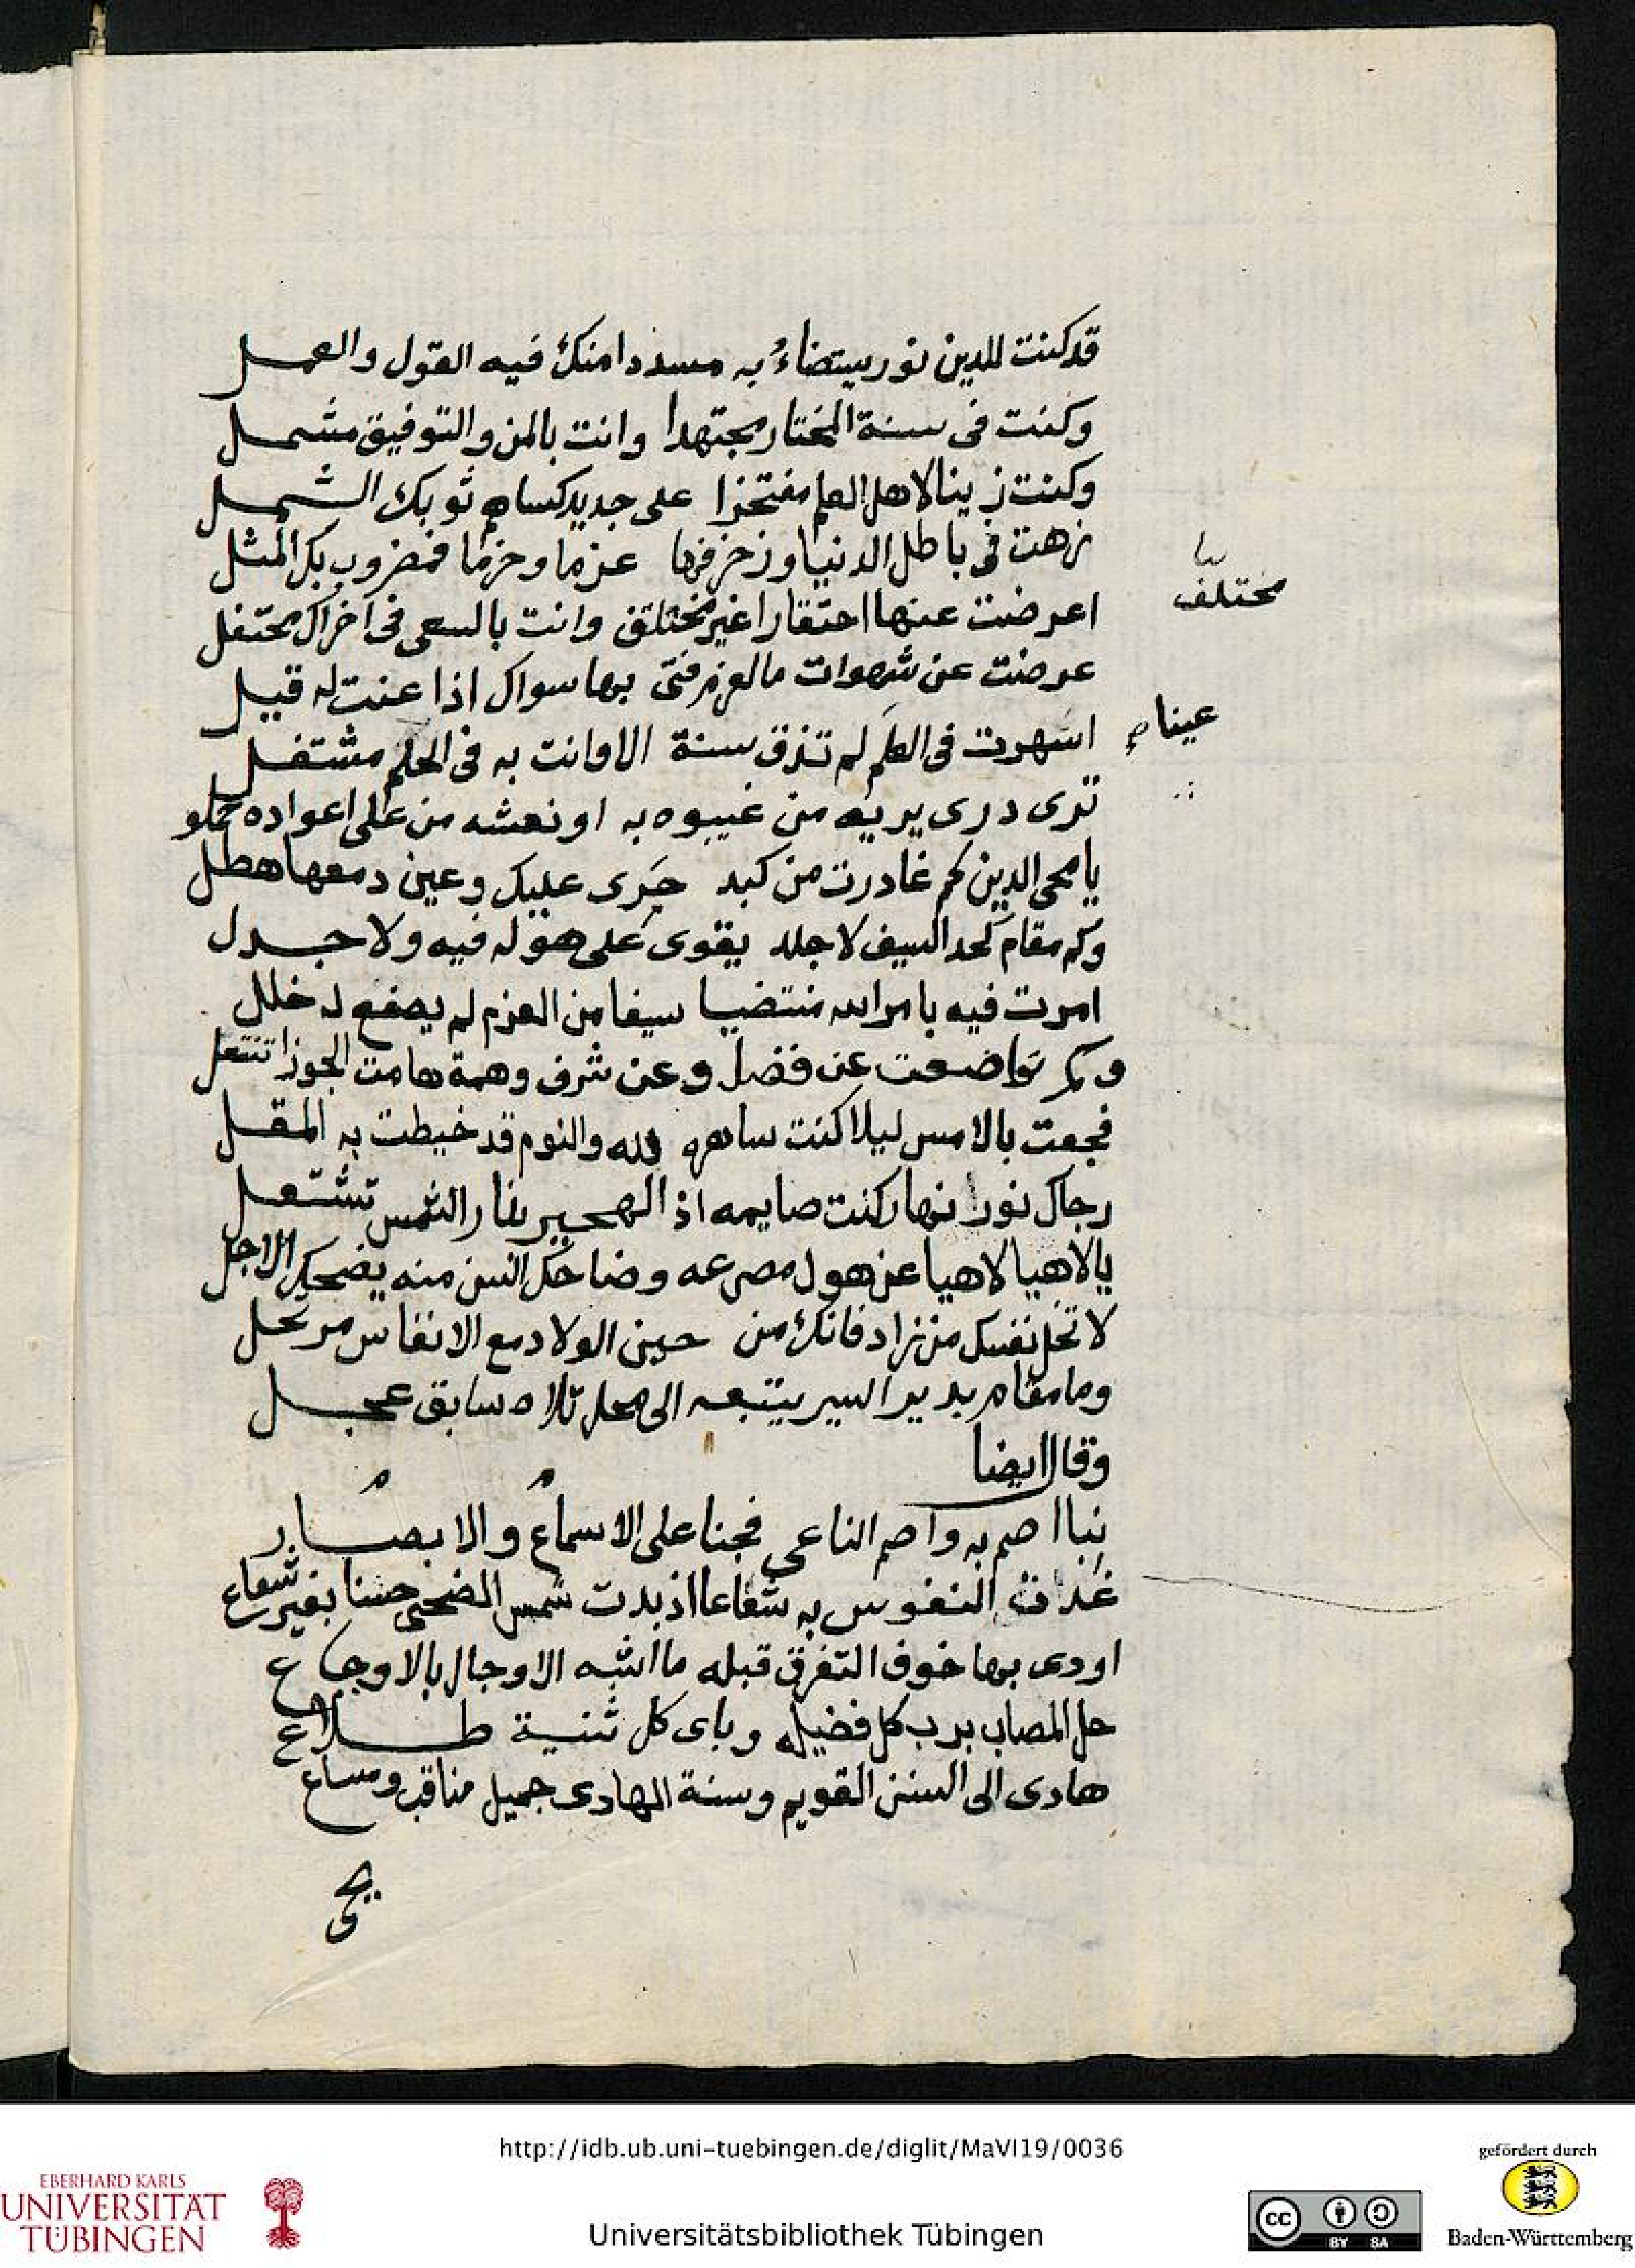 قد كنت للدين نور يستضاءُ به مسددا منك فيه القول والعمل
وكنت فى سنة المختار مجتهدا وانت بالمن والتوفيق مشمل
وكنت زينا لاهل العلم مفتخرا على جديد كساهم ثوبك الشمل
نزهت فى باطل الدنيا وزخرفها عزما وحزما فمضروب بك المثل
اعرضت عنها احتقارا غير مختلق وانت بالسعى فى اخراك محتفل
مختلف
عرضت عن شهوات ما لعزم فتى بها سواك اذا عنت له قبل
اسهرت فى العلم لم تذق سنة الا وانت به فى الحلم مشتغل
عيناه
ترى درى يربه من غيبوه به او نعشه من على اعواده حملو
يا محى الدين كم غادرت من كبد حَرى عليك وعين دمعها هطل
وكم مقام كحد السيف لا جلد يقوى على هوله فيه ولا جدل
امرت فيه بامر الله منتضيا سيفا من العزم لم يصنع له خلل
وكم تواضعت عن فضل وعن شرف وهمة هامت الجوزا تنتعل
فجعت بالامس ليلا كنت ساهره لله والنوم قد خيطت به المقل
رجاك نور نهار كنت صايمه اذ الهجير بنار الشمس تشتعل
يالاهيا لاهيا عن هول مصرعه وضاحك السن منه يضحك الاجل
لا تخل نفسك من زاد فانك من حين الولاد مع الانفاس مرتحل
وما مقام يديد السير يتبعه الى محل ثلاه سابق عجل
وقال ايضا
نبا اصم به واصم الناعى فجنا على الاسماع والابصار
غدات النفوس به شعاعا اذ بدت شمس الضحى حسنا بغير شعاع
اودى بها خوف التفرق قبله ما اشبه الاوجال بالاوجاع
حل المصاب برب كل فضيله وباى كل ثنية طلاع
هادى الى السنن القويم وسنة الهادى جميل مناقب ومساع
http://idb.ub.uni-tuebingen.de/diglit/MaVI19/0036
Universitätsbibliothek Tübingen
EBERHARD KARLS
UNIVERSITÄT
TÜBINGEN
cc BY SA
gefördert durch
Baden-Württemberg